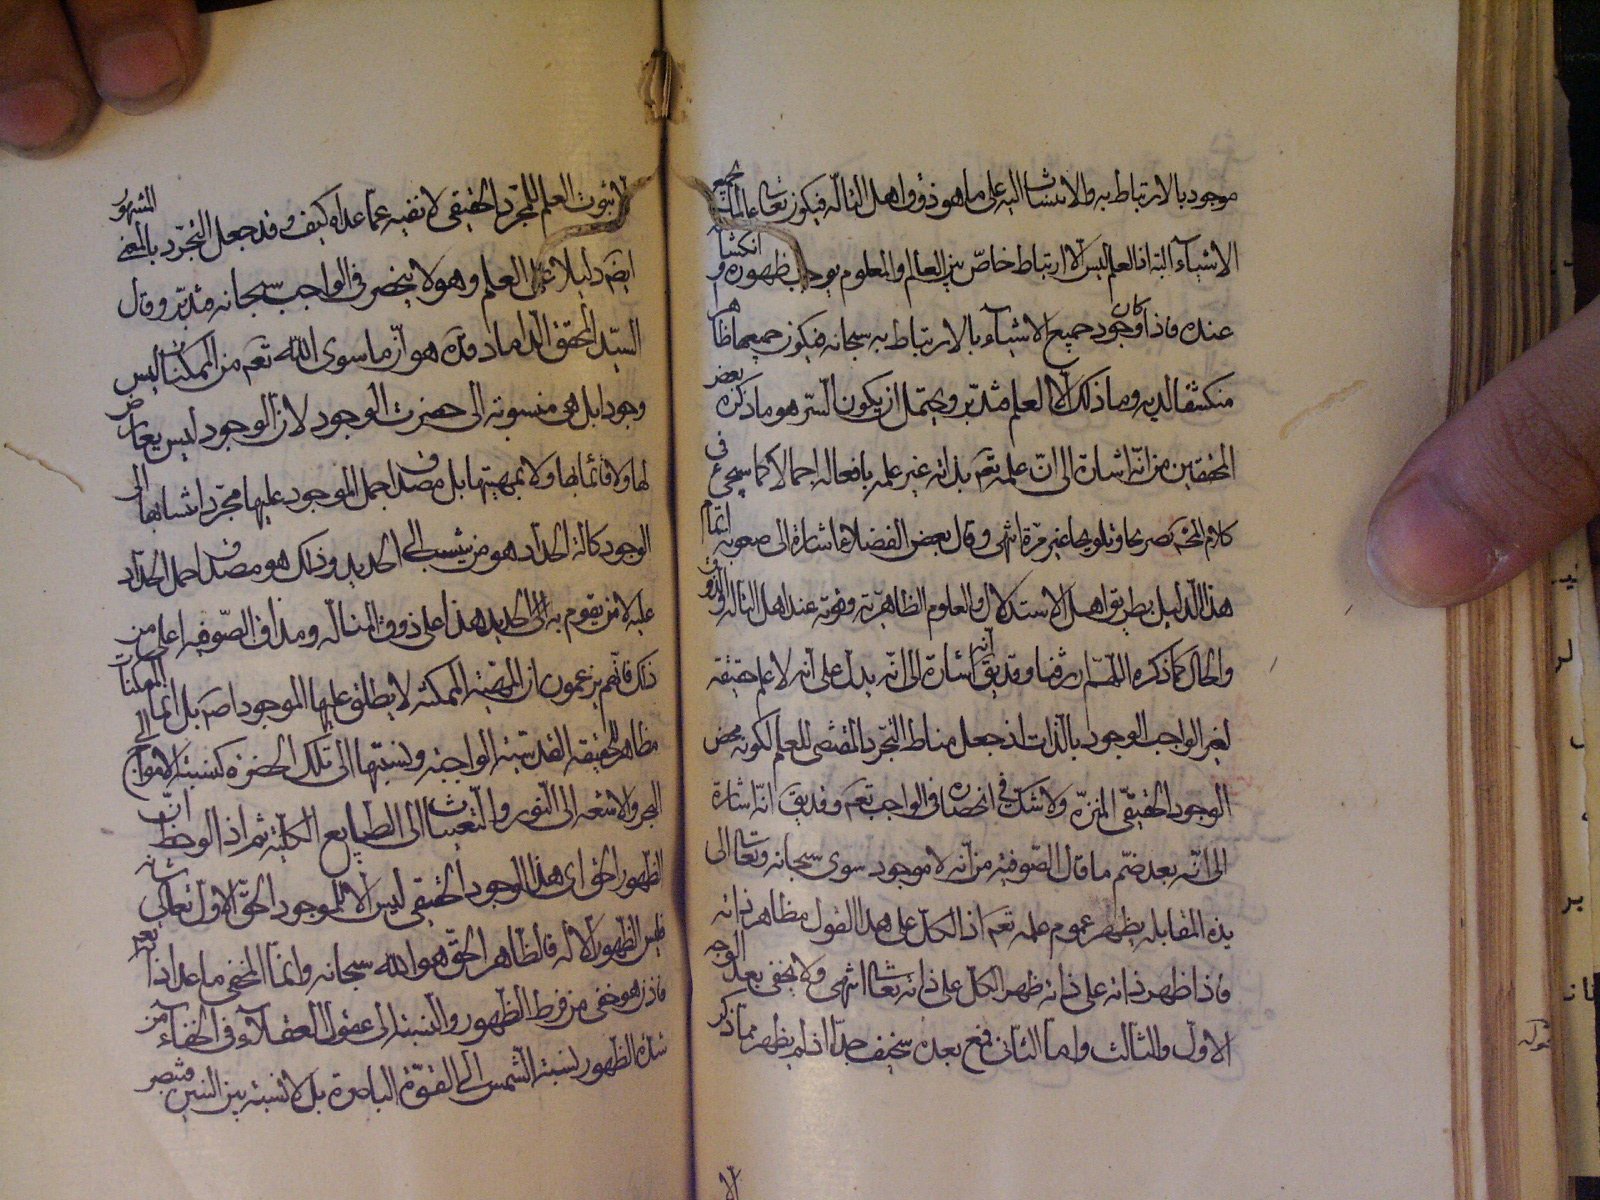 موجود بالارتباط به والانتساب اليه على ما هو ذوق اهل التاله فيكون تعالى عالما بجميع
الاشياء البتة اذ العلم ليس الا ارتباط خاص بين العالم والمعلوم يوجب ظهوره وانكشافه
عنده فاذا كان وجود جميع الاشياء بالارتباط به سبحانه فيكون جميعها ظاهرا
منكشفا لديه وما ذلك الا العلم فتدبر ويحتمل ان يكون السر هو ما ذكره بعض
المحققين من انه اشارة الى ان علمه تعم بذاته غير علمه بافعاله اجمالا كما سيجئ في
كلام المحـ تصريحا وتلويحا غير مرة انتهى وقال بعض الفضلاء اشارة الى صعوبة اتمام
هذا الدليل بطريق اهل الاستدلال والعلوم الظاهرية وقوته عند اهل التاله والذوق
والحال كما ذكره اللهم ارزقنا وقد يق انه اشارة الى انه يدل على انه لا علم حقيقة
لغير الواجب الوجود بالذات اذ جعل مناط التجرد المقتضى للعلم لكونه محض
الوجود الحقيقي المنزه ولا شك في انحصاره في الواجب تعم وقد يق انه اشارة
الى انه بعد ضم ما قال الصوفية من انه لا موجود سوى سبحانه وتعالى الى
هذه المقابلة يظهر عموم علمه تعم اذ الكل على هذا القول مظاهر ذاته
فاذا ظهر ذاته على ذاته ظهر الكل على ذاته تعالى انتهى ولا يخفى بعد الوجه
الاول والثالث واما الثاني فمع بعده سخيف جدا اذ لم يظهر مما ذكر
الا
لا ثبوت العلم للمجرد الحقيقي لا نفيه عما عداه كيف وقد جعل التجرد بالمعنى المشهور
ايضه دليلا على العلم وهو لا ينحصر في الواجب سبحانه فتدبر وقال
السيد المحقق الداماد قده هو ان ما سوى الله تعم من الممكنات ليس
وجودا بل هي منسوبة الى حضرت الوجود لان الوجود ليس بعارض
لها ولا قائما بها ولا بمهيتها بل مصداق حمل الموجود عليها مجرد انتسابها الى
الوجود كما ان الحداد هو من ينتسب الى الحديد وذلك هو مصداق حمل الحداد
عليه لا من يقوم به الحديد هذا على ذوق المتاله ومذاق الصوفيه اعلى من
ذلك فانهم يزعمون ان المهية الممكنة لا يطلق عليها الموجود اصه بل انما الممكنات
مظاهر للحقيقة القدسية الواجبه ونسبتها الى تلك الحضره كنسبة الامواج الى
البحر والاشعه الى النور والتعينات الى الطبايع الكلية ثم اذ الوحظ ان
الظهور الحق اي هذا الوجود الحقيقي ليس الا للموجود الحق الاول تعالى شانه
فليس الظهور الا له فالظاهر الحق هو الله سبحانه وانما المخفي ما عداه
فاذن هو خفي من فرط الظهور والنسبة الى عقول العقلاء في الخفاء من
شدة الظهور نسبة الشمس الى القوة الباصرة بل لا نسبة بين النسبتين فتبصر